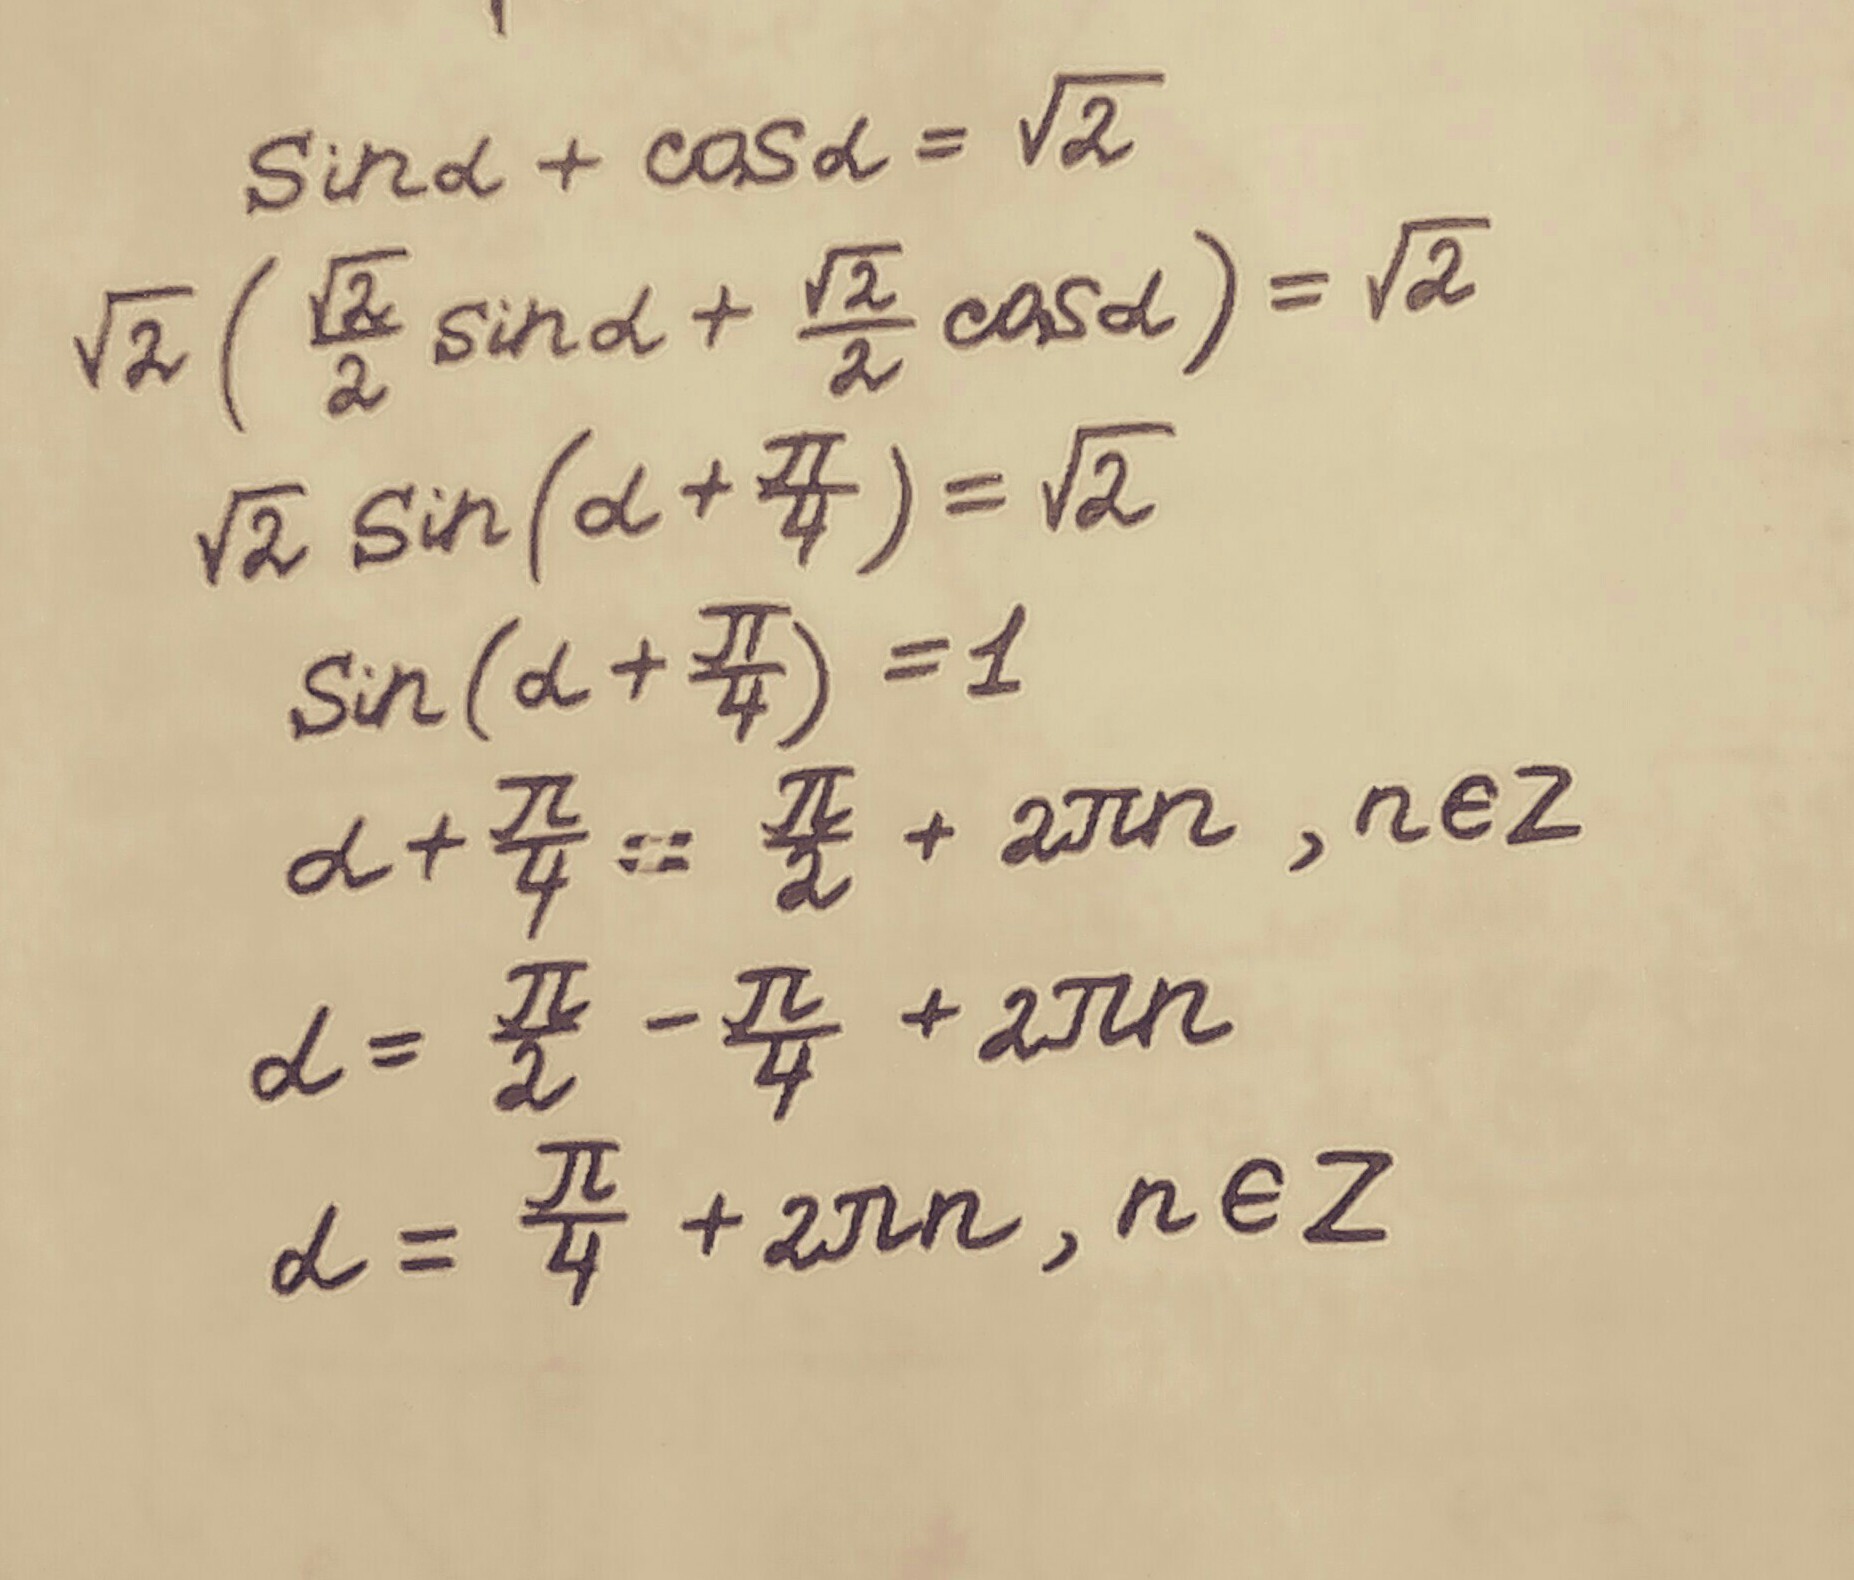 sinα + cosα = √2
√2 ( √2/2 sinα + √2/2 cosα ) = √2
√2 sin(α + π/4) = √2
sin(α + π/4) = 1
α + π/4 = π/2 + 2πn , n∈Z
α = π/2 - π/4 + 2πn
α = π/4 + 2πn, n∈Z